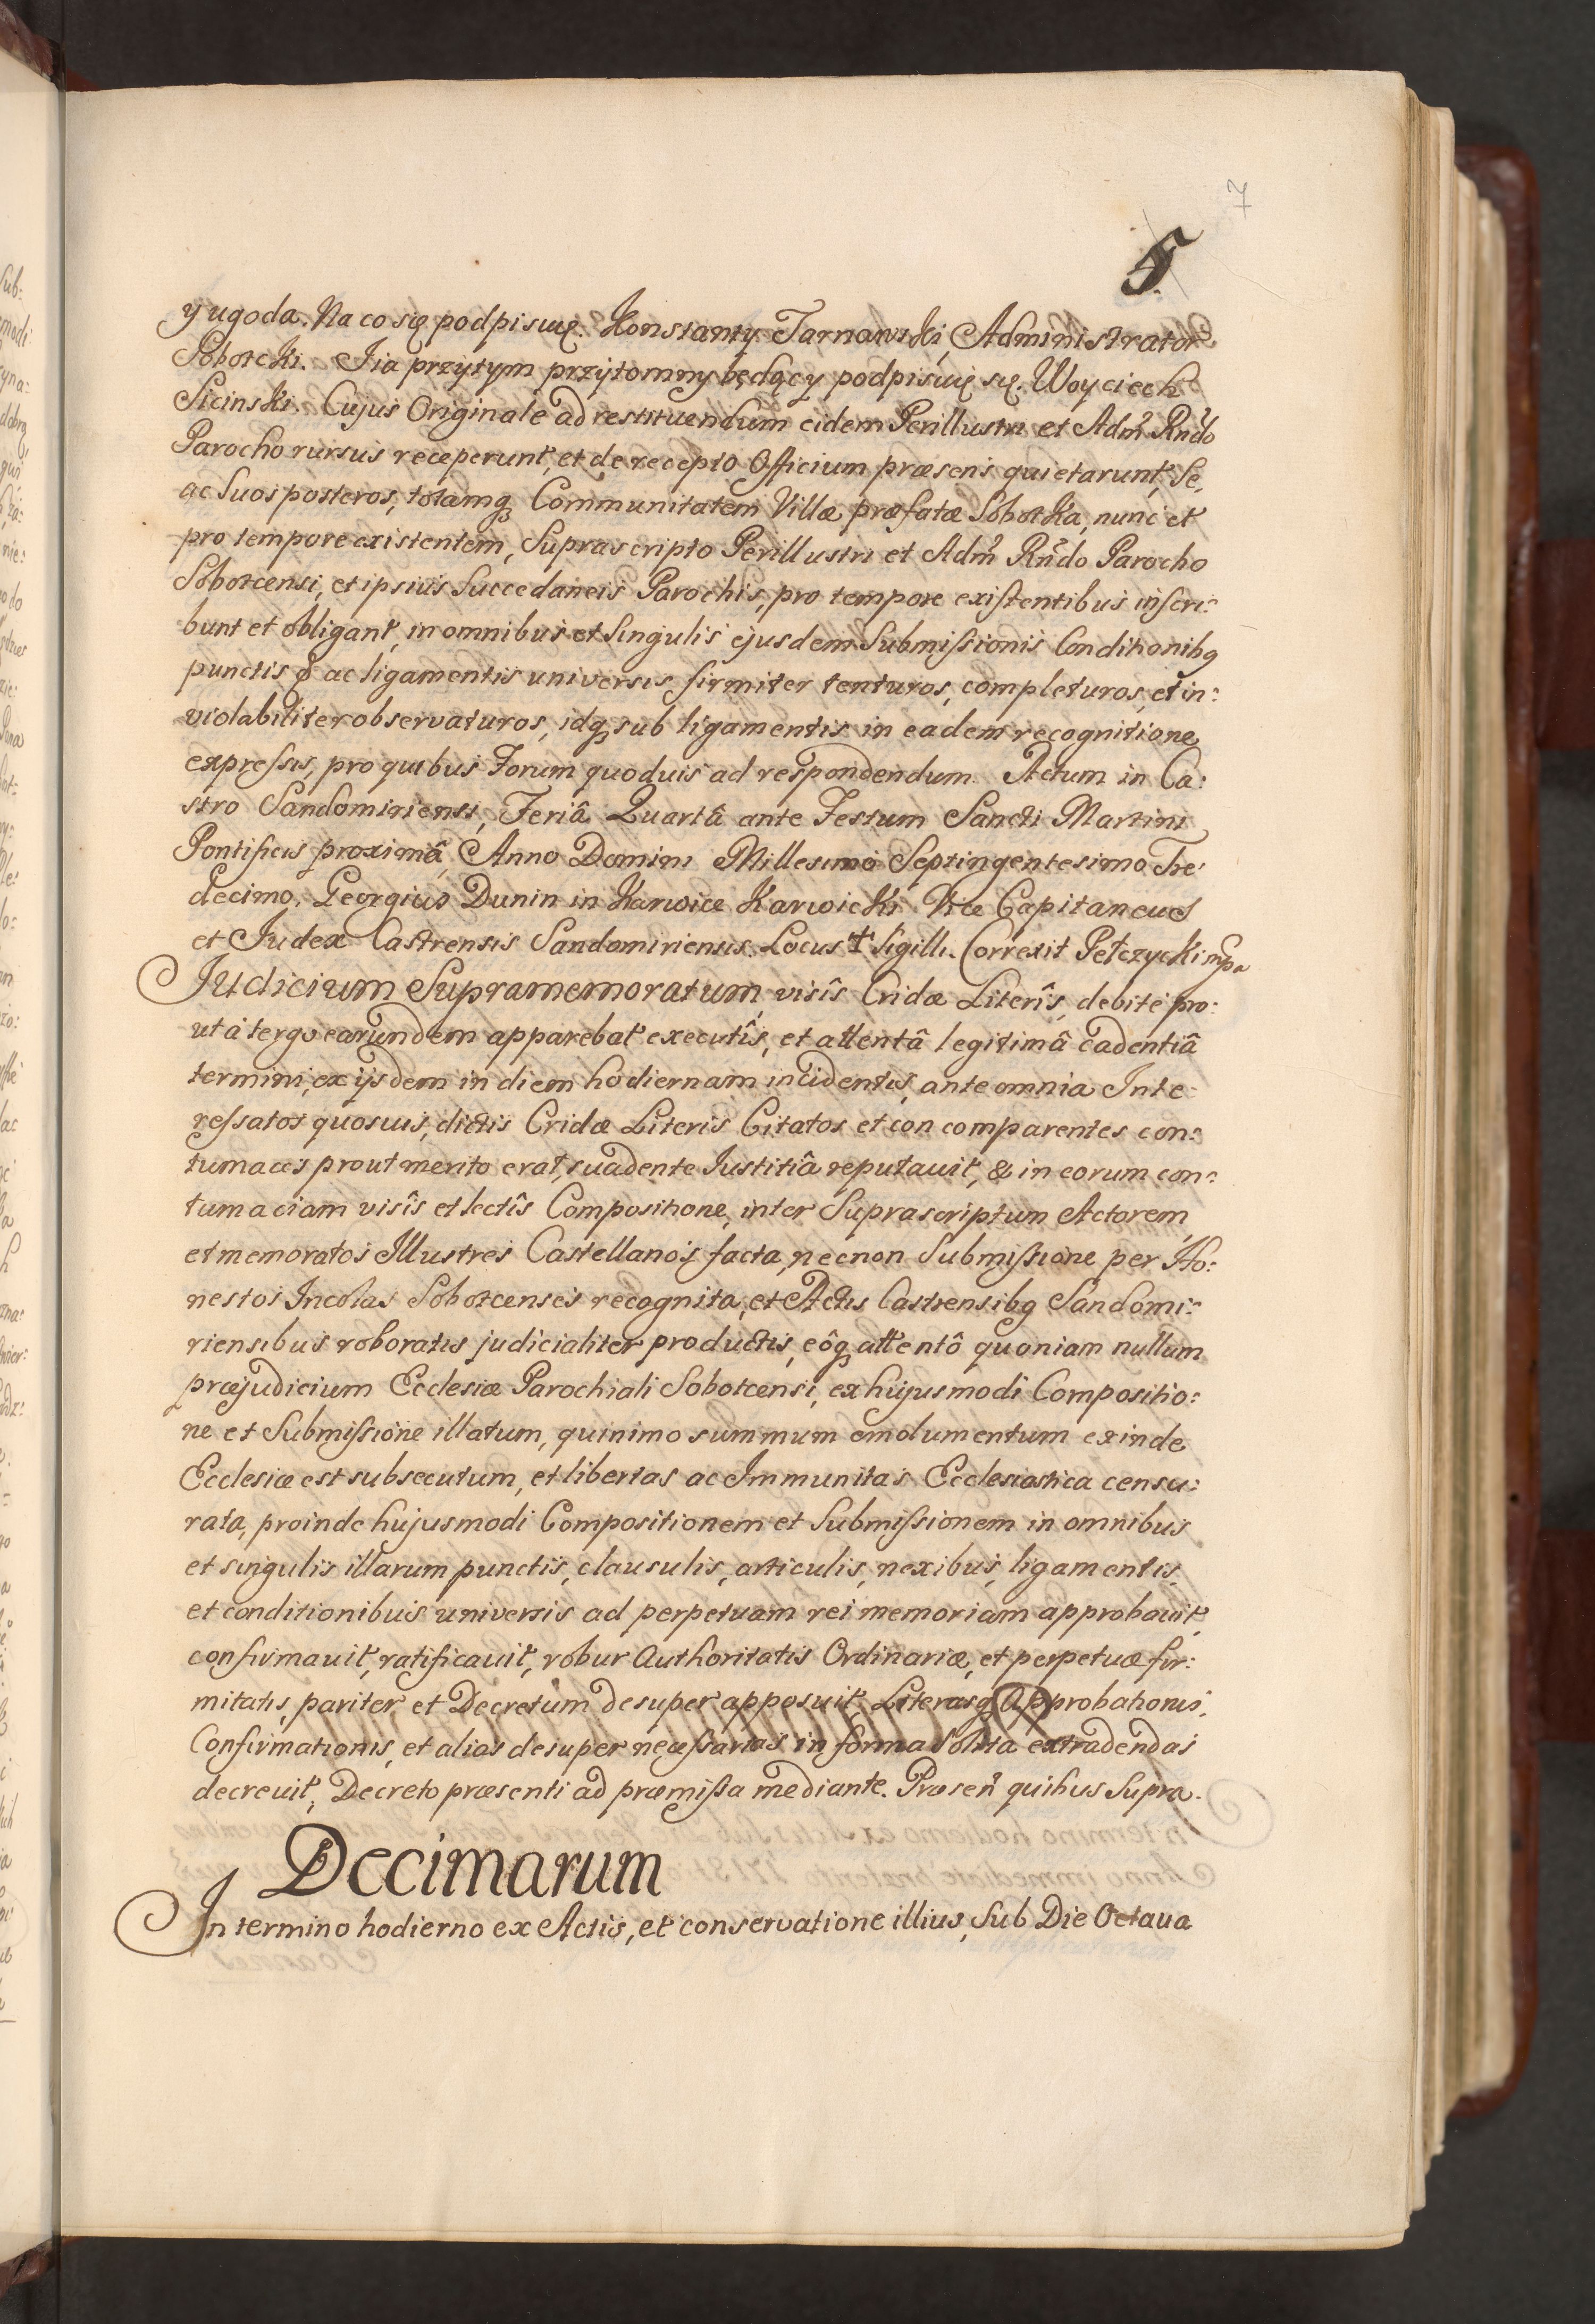 7
5.
y ugoda. Na co się podpisuię. Konstanty Tarnawski, Administrator
Sobotcki. I ia przytym przytomny będący podpisuię się. Woyciech
Siciński. Cujus Originale ad restituendum eidem Perillustri et Adm̃ Rñdo
Parocho rursus receperunt, et de recepto Officium præsens quietarunt, Se,
ac Suos posteros, totamq3 Communitatem Villæ præfatæ Sobotka, nunc et
pro tempore existentem, Suprascripto Perillustri et Adm̃ Rñdo Parocho
Sobotcensi, et ipsius Succedaneis Parochis, pro tempore existentibus inscri:
bunt et obligant, in omnibus et Singulis ejusdem Submissionis Conditionibq
punctis ac ligamentis universis firmiter tenturos, completuros, et in:
violabiliter observaturos, idq3 sub ligamentis in eadem recognitione
expressis, pro quibus Forum quoduis ad respondendum. Actum in Ca:
stro Sandomiriensi, Feriâ Quartâ ante Festum Sancti Martini
Pontificis proximâ, Anno Domini Millesimo Septingentesimo Tre:
decimo. Georgius Dunin in Karwice Karwicki Vice Capitaneus
et Judex Castrensis Sandomiriensis. Locus ✝ Sigilli. Correxit Pełczycki mpa
Judicium Supramemoratum, visîs Cridæ Literîs, debitè pro:
ut à tergo earundem apparebat executîs, et attentâ legitimâ cadentiâ
termini, ex ijsdem in diem hodiernam incidentis, ante omnia Inte:
ressatos quosuis, dictis Cridæ Literis Citatos et con comparentes con:
tumaces prout merito erat, suadente Justitiâ reputauit, & in eorum con:
tumaciam visîs et lectîs Compositione, inter Suprascriptum Actorem,
et memoratos Illustres Castellanos facta, necnon Submissione per Ho:
nestos Incolas Sobotcenses recognita, et Actis Castrensibq Sandomi:
riensibus roboratis judicialiter productis, eôq3 attentô quoniam nullum
præjudicium Ecclesiæ Parochiali Sobotcensi, ex hujusmodi Compositio:
ne et Submissione illatum, quinimo summum emolumentum exinde
Ecclesiæ est subsecutum, et libertas ac Immunitas Ecclesiastica censu:
rata, proinde hujusmodi Compositionem et Submissionem in omnibus
et singulis illarum punctis, clausulis, articulis, nexibus, ligamentis
et conditionibus universis ad perpetuam rei memoriam approbauit,
confirmauit, ratificauit, robur Authoritatis Ordinariæ, et perpetuæ fir:
mitatis, pariter et Decretum desuper apposuit, Literasq3 Approbationis,
Confirmationis, et alias desuper necessarias in forma solita extradendas
decreuit, Decreto præsenti ad præmissa mediante. Præseñ quibus Supra.
Decimarum
In termino hodierno ex Actis, et conservatione illius, Sub Die Octaua